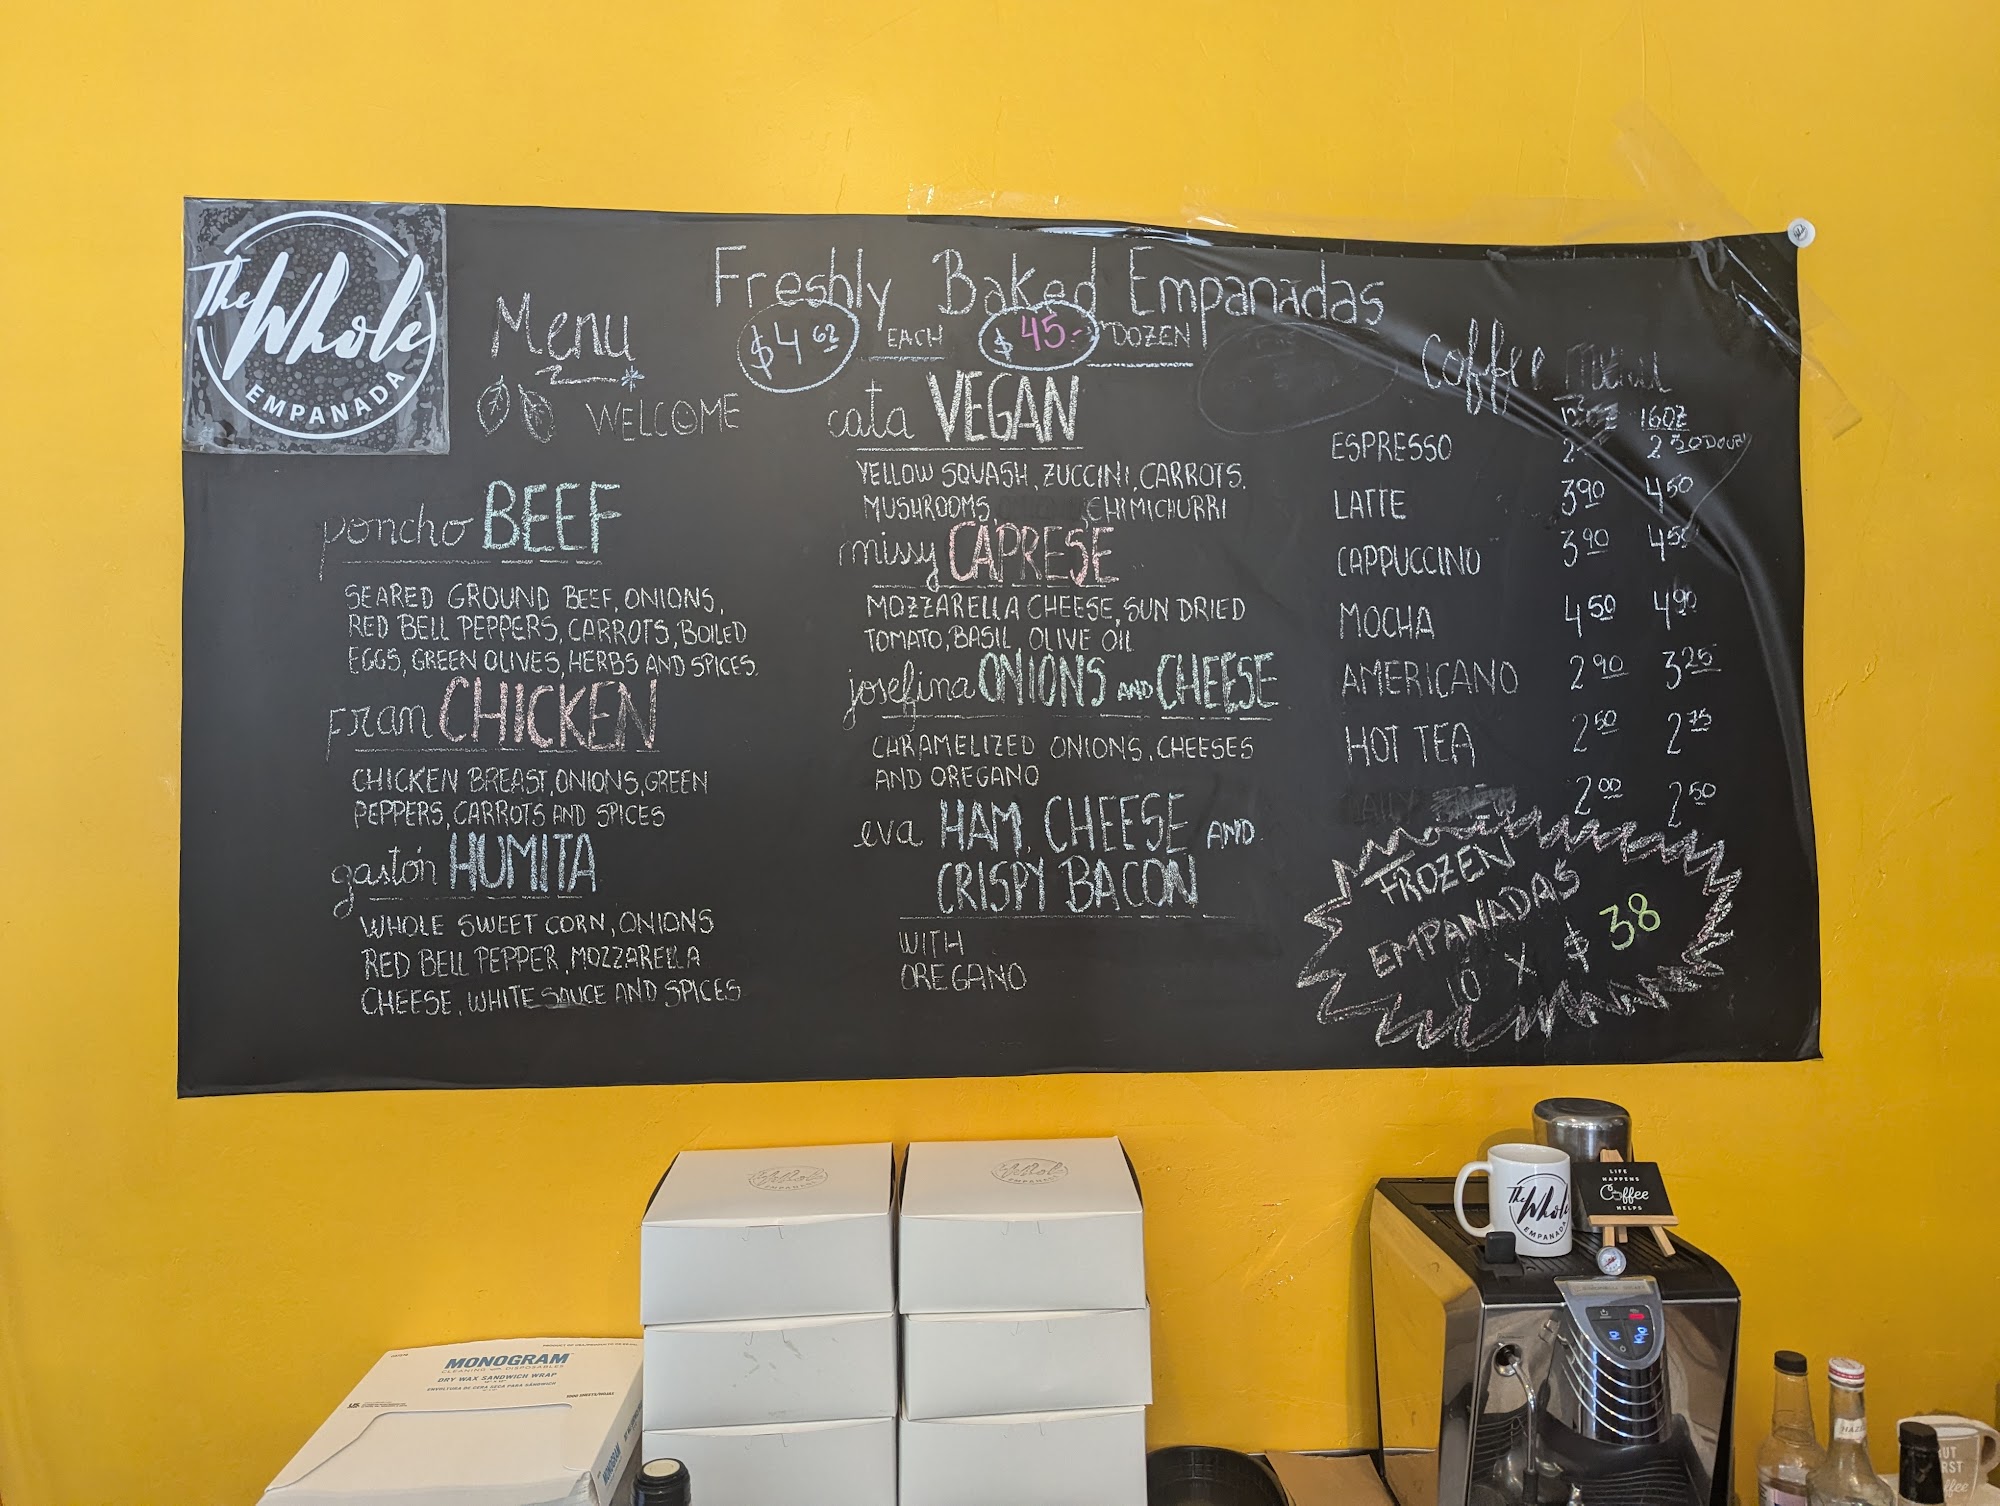 The Whole
EMPANADA
Menu
WELCOME
Freshly Baked Empanadas
$4 62 EACH $45.- DOZEN
poncho BEEF
SEARED GROUND BEEF, ONIONS,
RED BELL PEPPERS, CARROTS, BOILED
EGGS, GREEN OLIVES, HERBS AND SPICES.
Fran CHICKEN
CHICKEN BREAST, ONIONS, GREEN
PEPPERS, CARROTS AND SPICES
gastón HUMITA
WHOLE SWEET CORN, ONIONS
RED BELL PEPPER, MOZZARELLA
CHEESE, WHITE SAUCE AND SPICES
cata VEGAN
YELLOW SQUASH, ZUCCINI, CARROTS,
MUSHROOMS, CHIMICHURRI
missy CAPRESE
MOZZARELLA CHEESE, SUN DRIED
TOMATO, BASIL, OLIVE OIL
josefina ONIONS AND CHEESE
CARAMELIZED ONIONS, CHEESES
AND OREGANO
eva HAM, CHEESE AND
CRISPY BACON
WITH
OREGANO
Coffee Menu
12OZ 16OZ
ESPRESSO 2 2 50
LATTE 3 90 4 50
CAPPUCCINO 3 90 4 50
MOCHA 4 50 4 90
AMERICANO 2 90 3 25
HOT TEA 2 50 2 75
DAILY 2 00 2 50
FROZEN
EMPANADAS
10 X $ 38
Whole
EMPANADA
Whole
EMPANADA
The Whole
EMPANADA
LIFE
HAPPENS
Coffee
HELPS
MONOGRAM
CLEANING AND DISPOSABLES
DRY WAX SANDWICH WRAP
ENVOLTURA DE CERA SECA PARA SÁNDWICH
MONOGRAM